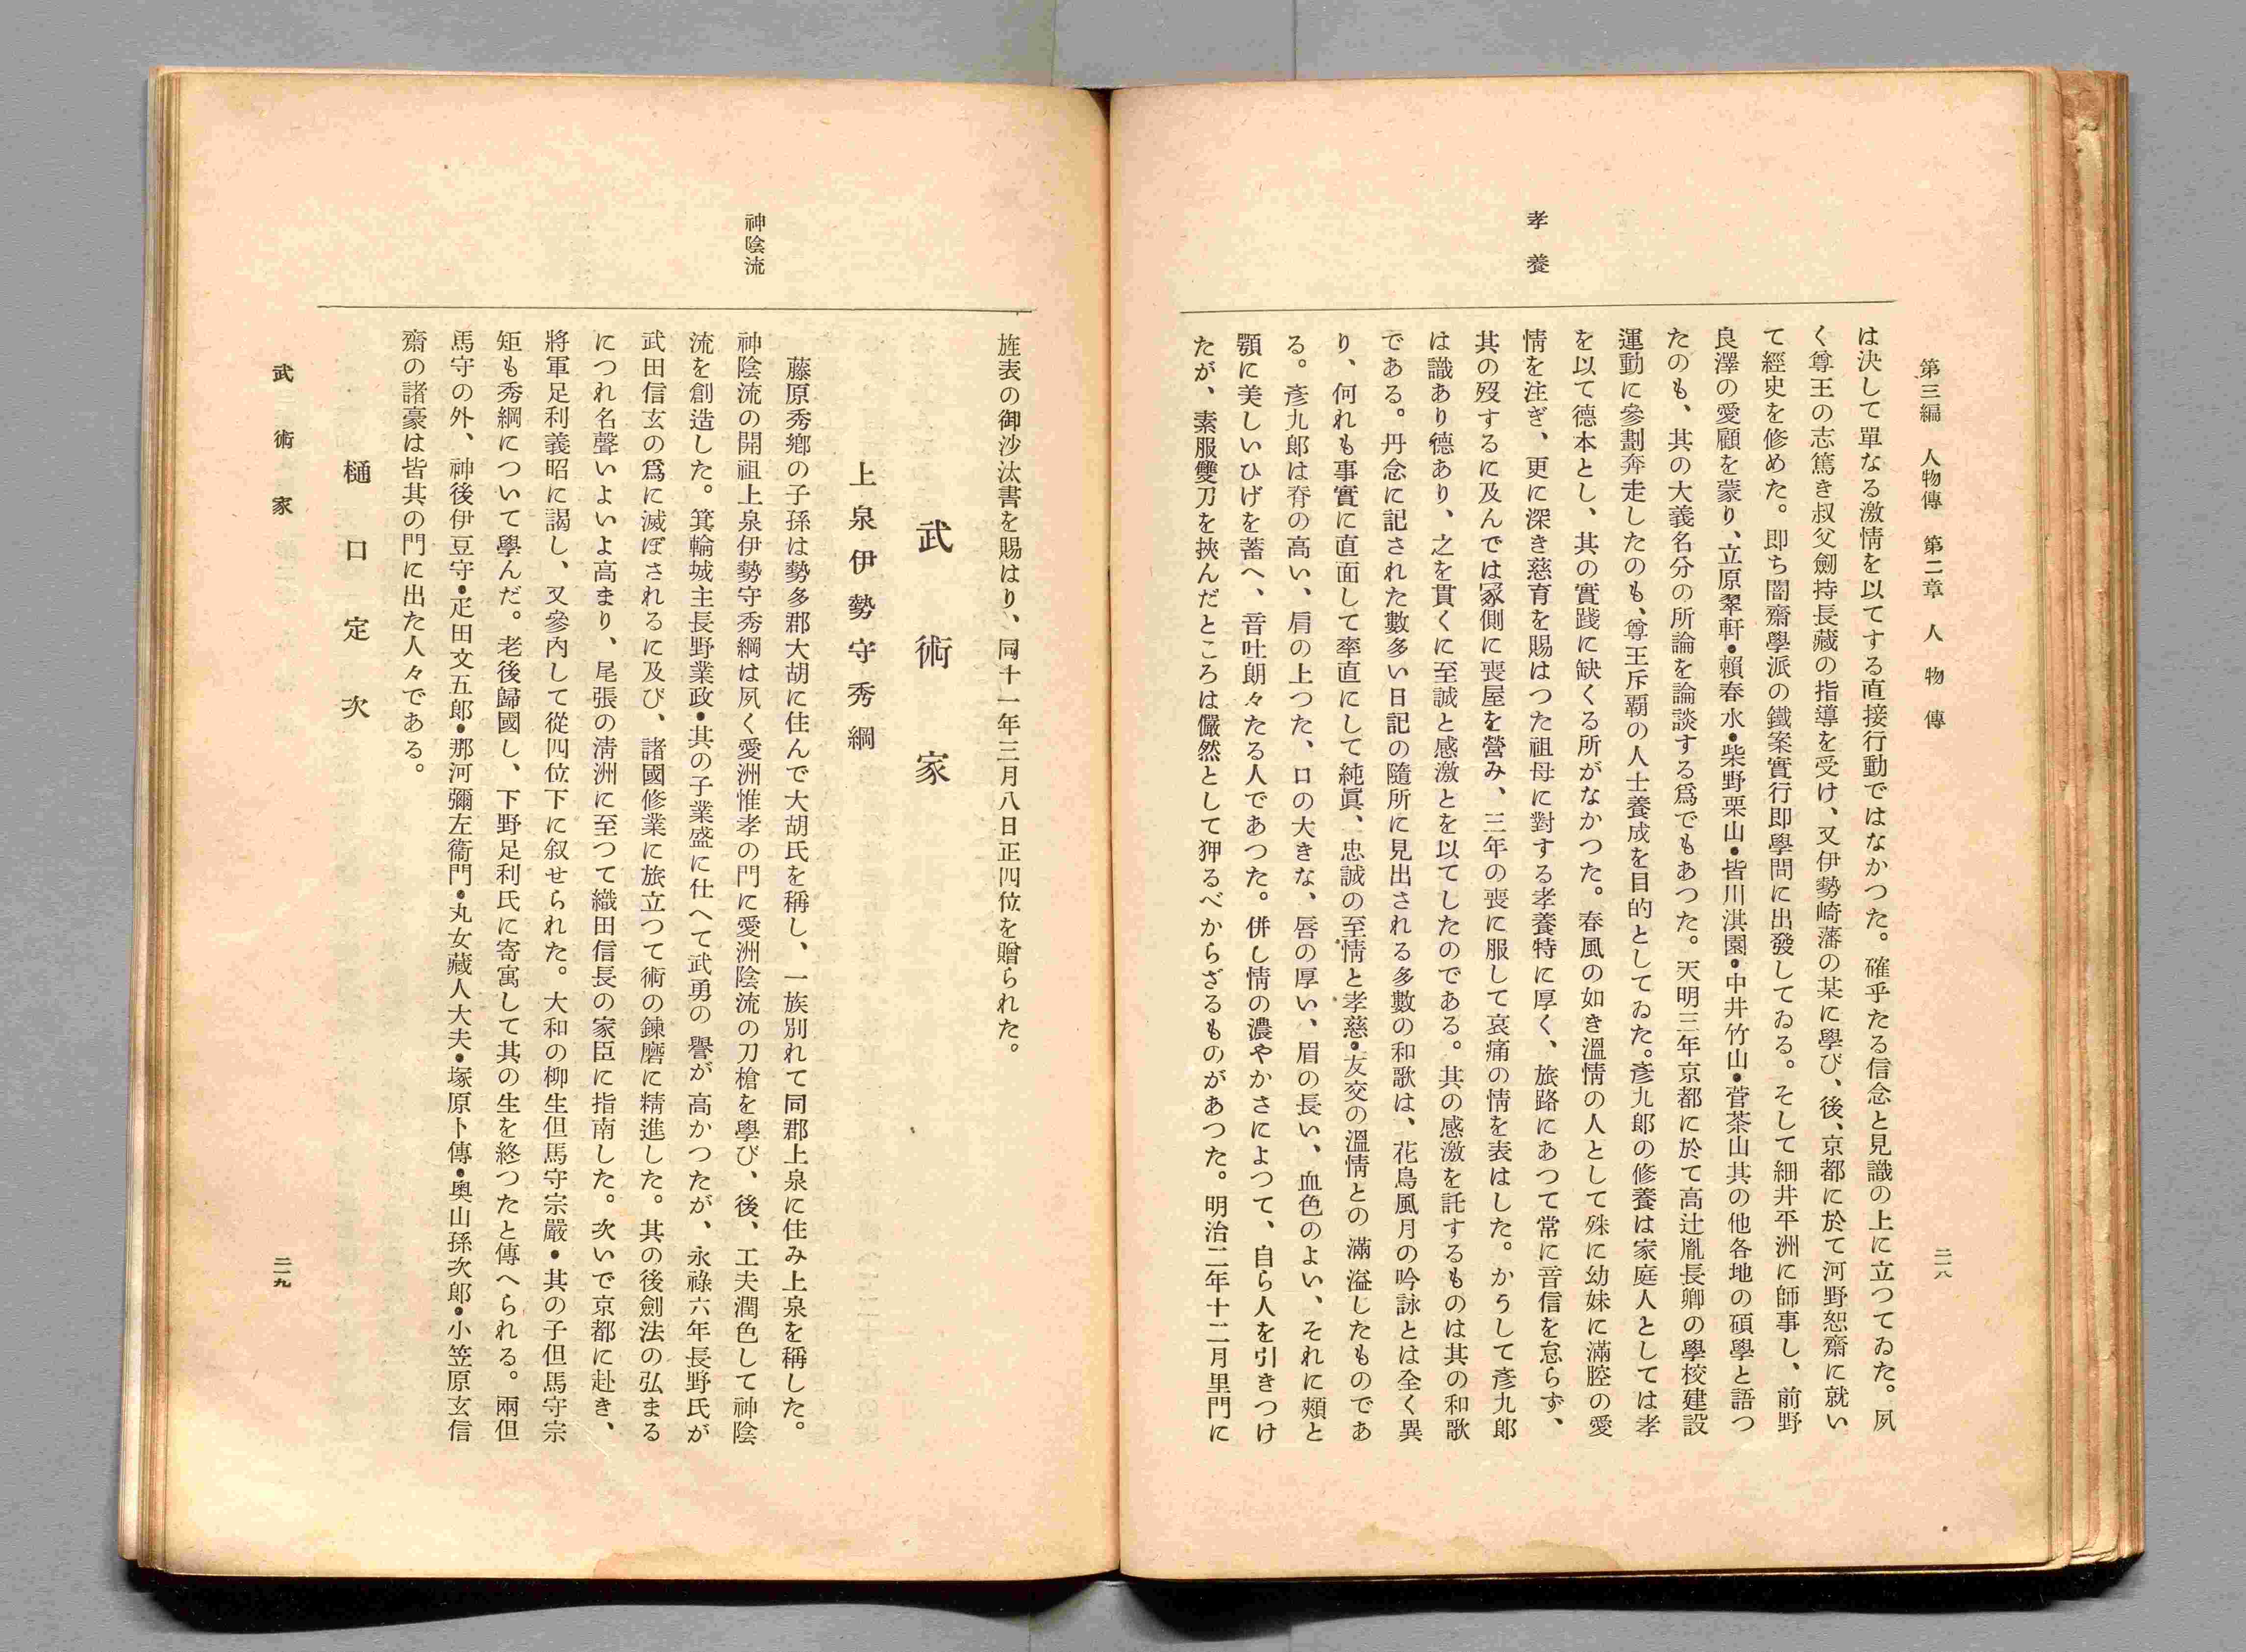 第三編　人物傳　第二章　人物傳
二一八
孝養
は決して單なる激情を以てする直接行動ではなかつた。確乎たる信念と見識の上に立つてゐた。夙
く尊王の志篤き叔父劍持長藏の指導を受け、又伊勢崎藩の某に學び、後、京都に於て河野恕齋に就い
て經史を修めた。即ち闇齋學派の鐵案實行即學問に出發してゐる。そして細井平洲に師事し、前野
良澤の愛顧を蒙り、立原翠軒・賴春水・柴野栗山・皆川淇園・中井竹山・菅茶山其の他各地の碩學と語つ
たのも、其の大義名分の所論を論談する爲でもあつた。天明三年京都に於て高辻胤長卿の學校建設
運動に參劃奔走したのも、尊王斥覇の人士養成を目的としてゐた。彥九郎の修養は家庭人としては孝
を以て德本とし、其の實踐に缺くる所がなかつた。春風の如き溫情の人として殊に幼妹に滿腔の愛
情を注ぎ、更に深き慈育を賜はつた祖母に對する孝養特に厚く、旅路にあつて常に音信を怠らず、
其の歿するに及んでは冢側に喪屋を營み、三年の喪に服して哀痛の情を表はした。かうして彥九郎
は識あり德あり、之を貫くに至誠と感激とを以てしたのである。其の感激を託するものは其の和歌
である。丹念に記された數多い日記の隨所に見出される多數の和歌は、花鳥風月の吟詠とは全く異
り、何れも事實に直面して率直にして純眞、忠誠の至情と孝慈・友交の溫情との滿溢したものであ
る。彥九郎は脊の高い、肩の上つた、口の大きな、唇の厚い、眉の長い、血色のよい、それに頰と
顎に美しいひげを蓄へ、音吐朗々たる人であつた。併し情の濃やかさによつて、自ら人を引きつけ
たが、素服雙刀を挾んだところは儼然として狎るべからざるものがあつた。明治二年十二月里門に
旌表の御沙汰書を賜はり、同十一年三月八日正四位を贈られた。
武術家
上泉伊勢守秀綱
神陰流
藤原秀鄕の子孫は勢多郡大胡に住んで大胡氏を稱し、一族別れて同郡上泉に住み上泉を稱した。
神陰流の開祖上泉伊勢守秀綱は夙く愛洲惟孝の門に愛洲陰流の刀槍を學び、後、工夫潤色して神陰
流を創造した。箕輪城主長野業政・其の子業盛に仕へて武勇の譽が高かつたが、永祿六年長野氏が
武田信玄の爲に滅ぼされるに及び、諸國修業に旅立つて術の鍊磨に精進した。其の後劍法の弘まる
につれ名聲いよいよ高まり、尾張の淸洲に至つて織田信長の家臣に指南した。次いで京都に赴き、
將軍足利義昭に謁し、又參內して從四位下に叙せられた。大和の柳生但馬守宗嚴・其の子但馬守宗
矩も秀綱について學んだ。老後歸國し、下野足利氏に寄寓して其の生を終つたと傳へられる。兩但
馬守の外、神後伊豆守・疋田文五郎・那河彌左衞門・丸女藏人大夫・塚原卜傳・奧山孫次郎・小笠原玄信
齋の諸豪は皆其の門に出た人々である。
樋口定次
武術家
二一九